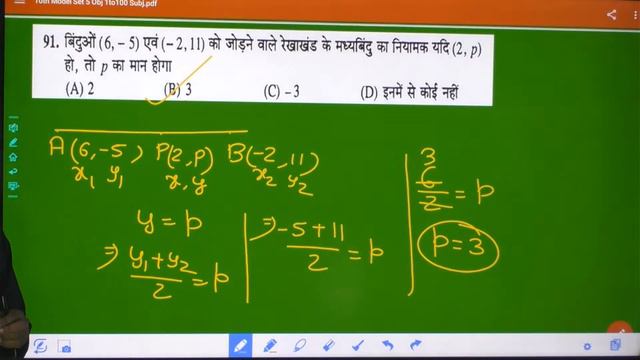 10th Model Set 5 Obj 1to100 Subj.pdf
91. बिंदुओं (6, – 5) एवं (– 2, 11) को जोड़ने वाले रेखाखंड के मध्यबिंदु का नियामक यदि (2, p)
हो, तो p का मान होगा
(A) 2 (B) 3 (C) – 3 (D) इनमें से कोई नहीं
A(6,-5) P(2,P) B(-2,11)
x₁ y₁ x, y x₂ y₂
y = p
⇒ (y₁+y₂)/2 = p
⇒ (-5+11)/2 = p
3
6/2 = p
p = 3